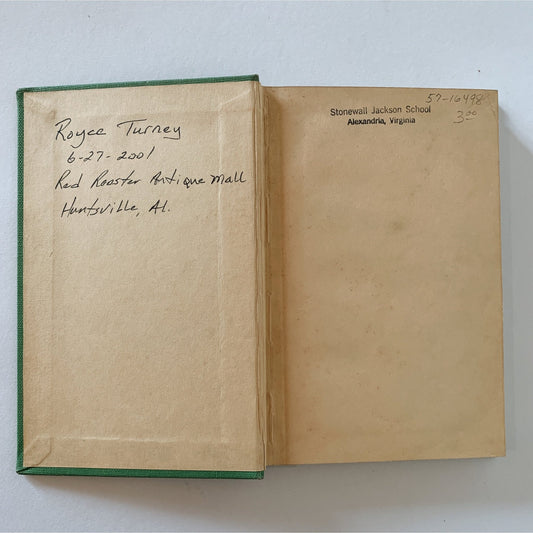 Royce Turney
6-27-2001
Red Rooster Antique Mall
Huntsville, Al.
57-16498
Stonewall Jackson School
Alexandria, Virginia
3.00